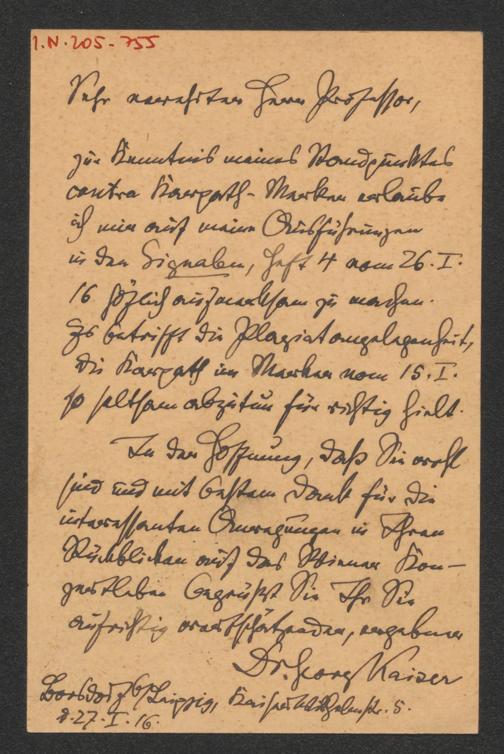 I.N. 205-755
Sehr verehrter Herr Professor,
zur Kenntnis meines Standpunktes
contra Karpath-Merker erlaube
ich mir auf meine Ausführungen
in den Signalen, Heft 4 vom 26. I.
16 höflich aufmerksam zu machen.
Es betrifft die Plagiatangelegenheit,
die Karpath im Merker vom 15. I.
so seltsam abzutun für richtig hielt.
In der Hoffnung, daß Sie wohl
sind und mit bestem Dank für die
interessanten Anregungen in Ihren
Rückblicken auf das Wiener Kon-
zertleben begrüßt Sie Ihr Sie
aufrichtig wertschätzender, ergebener
Dr. Georg Kaiser
Borsdorf b/Leipzig, Kaiser Wilhelmstr. 5.
d. 27. I. 16.